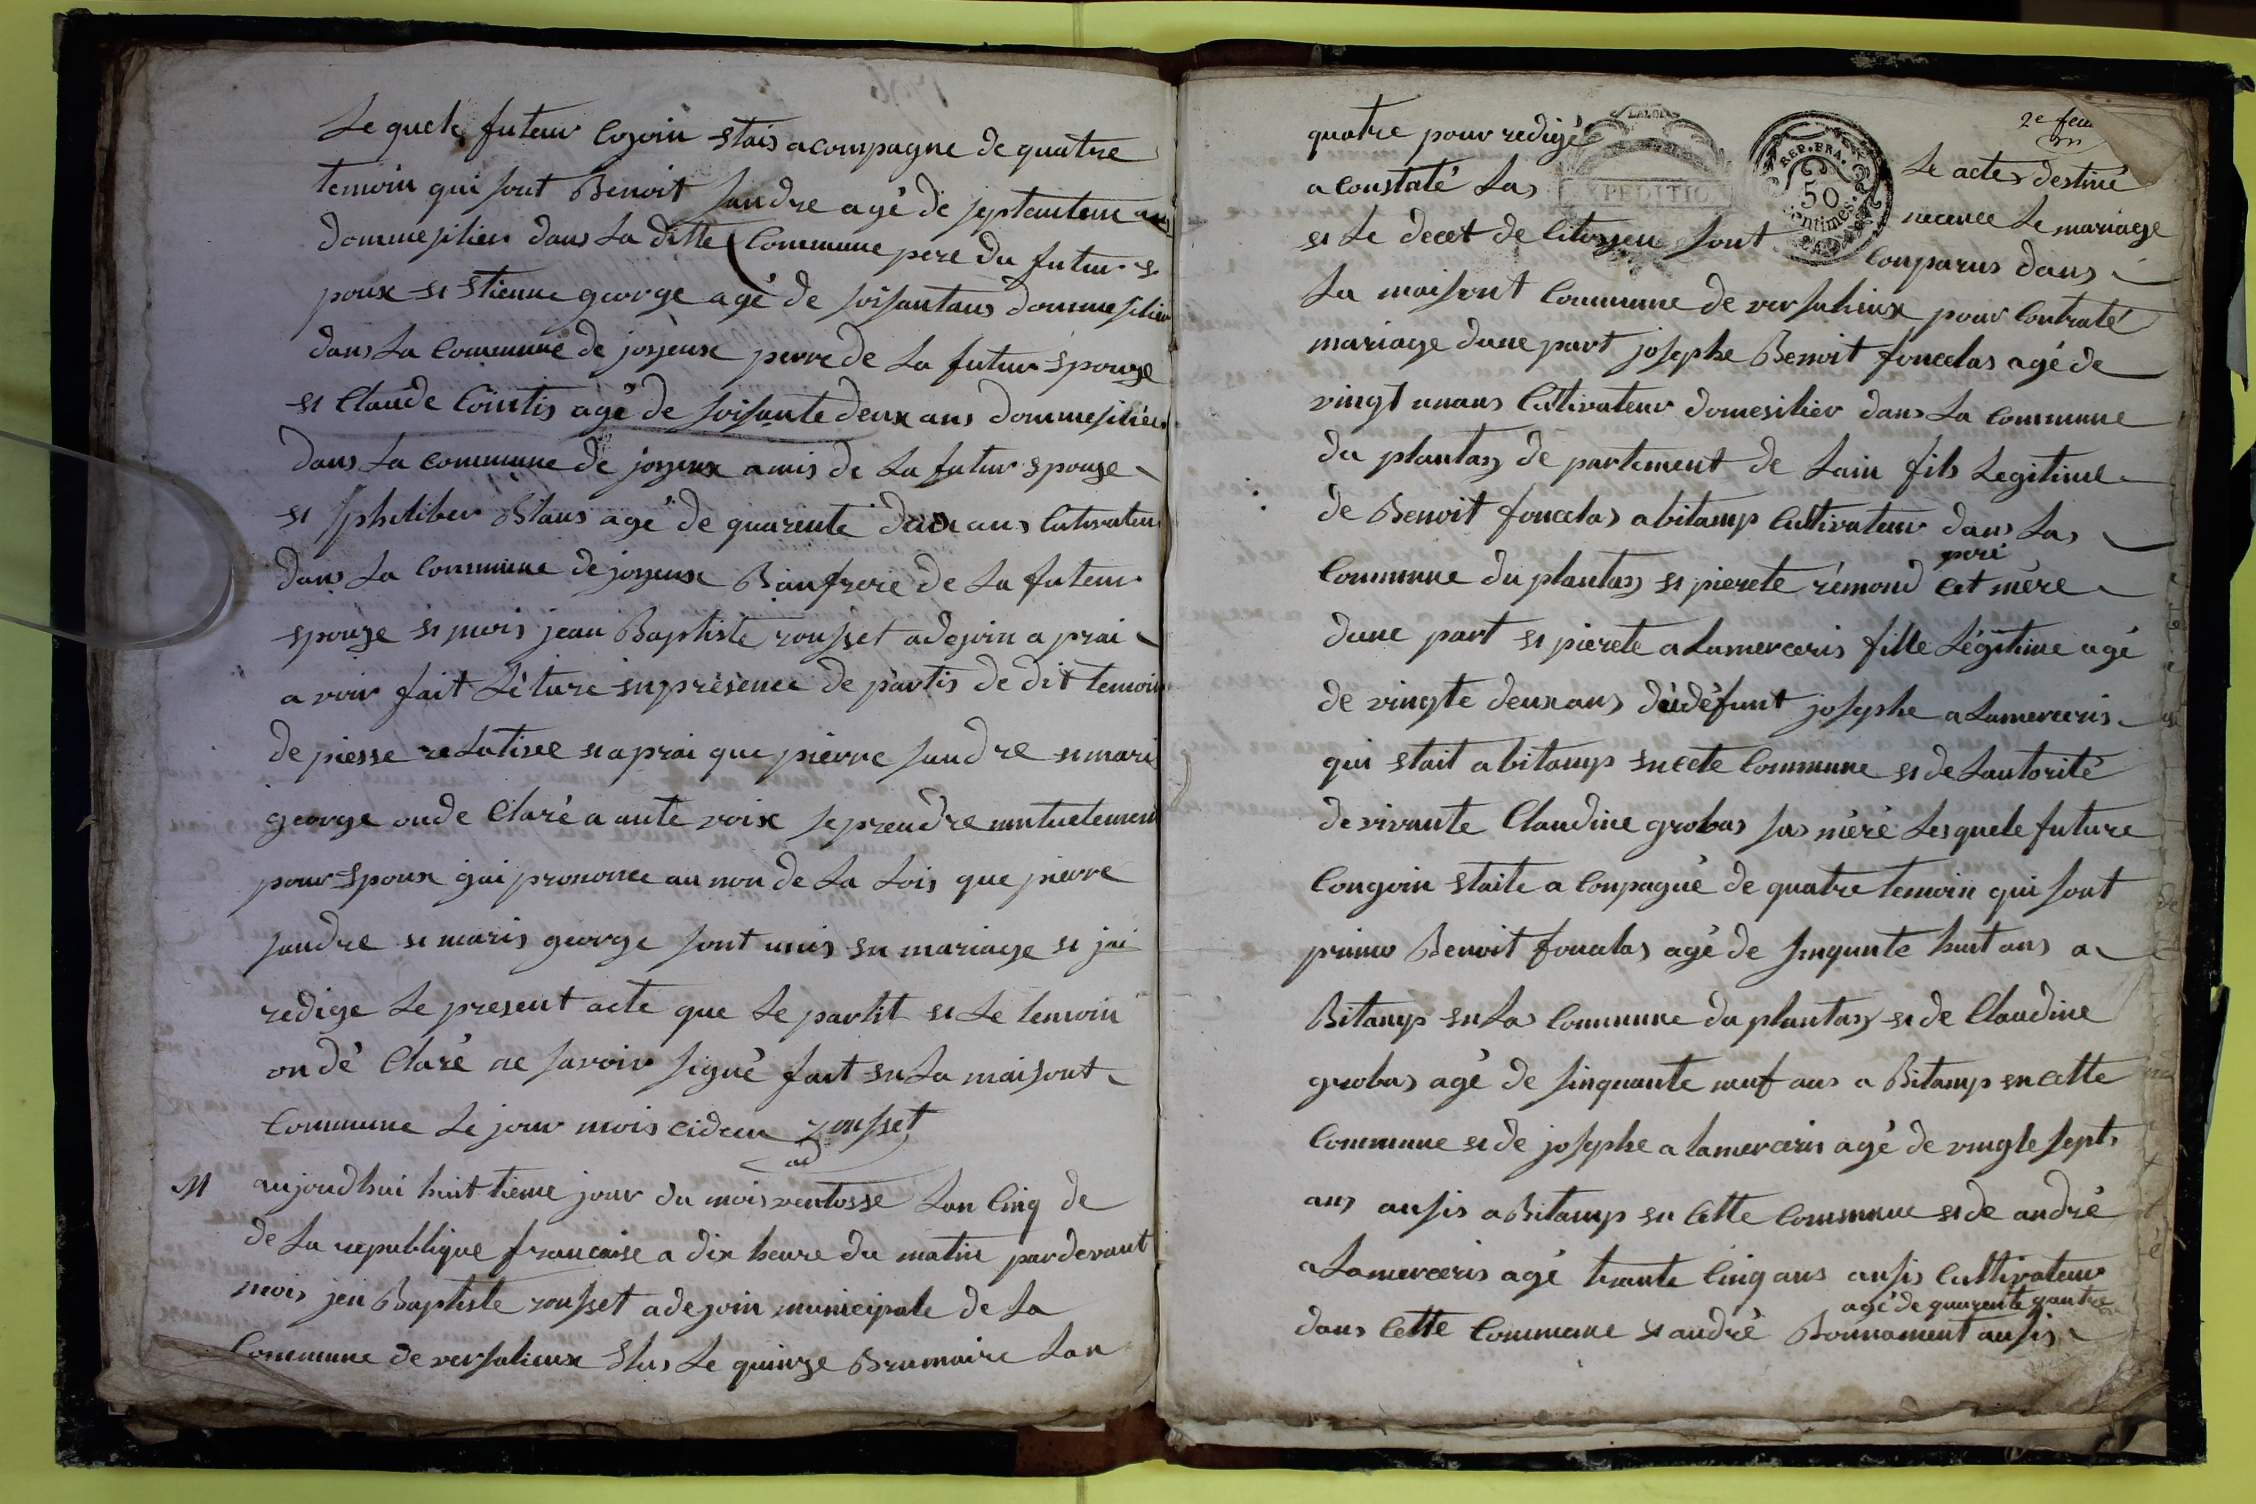 Le quele futeur cojoin etais acompagne de quatre
temoin qui sont Benoit Jandre agé de septantem ans
dommesilier dans la ditte Commune pere du futur e
poux et etienne george agé de soisantans dommesilier
dans la commune de joyeux perre de la futur epouze
et Claude Cointis agé de soisante deux ans dommesilier
dans la commune de joyeux amis de la futur epouze
et philiber Blanc agé de quarente deux ans Cutivateur
dans la commune de joyeux Baufrere de la futeur
epouze et mois jean Baptiste rousset adejoin a prai
a voir fait léture en présence de partis de dit temoin
de piesse relatisee et aprai que pierre Jandre et mari
george on de Claré a aute voix se prendre mutuelement
pour epoux jai prononce au non de la Lois que pierre
jandre et maris george sont unis en mariage et jai
redige Le present acte que Le partit et Le temoin
on dé Claré ne savoir signé fait en la maisont
Commune Le jour mois cideu rousset
ad
M aujoudhui huit tieme jour du mois ventosse Lan Cinq de
de la republique francaise a dix heure du matin pardevant
mois jen Baptiste rousset adejoin municipale de la
Commune de versalieux elus Le quinze Brumaire Lan
2e feu
quatre pour redigé Le actes destiné
a constaté Las necence Le mariage
et Le decet de Citoyen sont Conparus dans
La maisont Commune de versalieux pour Contraté
mariage dune part josephe Benoit foncelas agé de
vingt unans Cultivateur domesilier dans La commune
du plantay de partement de Lain fils Legitime
de Benoit foncelas abitamp Cultivateur dans Las
Commune du plantay et pierete rémond peré et mére
dune part et pierete alamerceris fille Légitime agé
de vingte deux ans du défunt josephe alamerceris
qui etait abitamp en cete Commune et de Lautorité
de vivante Claudine grobas sas méré Lesquele future
Congoin etaite a Conpagné de quatre temoin qui sont
primo Benoit foncelas agé de sinqunte huit ans a
Bitamp en Las Commune du plantay et de Claudine
grobas agé de sinquante neuf ans a Bitamp en cette
Commune et de josephe alamerceris agé de vingte sept
ans ausis a Bitamp en cette Commune et de andré
alamerceris agé trante Cinq ans ausis Cultivateur
agé de quarente quatre
dans Cette Commune et andré Bonnament ausis
REP. FRA.
50
Centimes.
EXPEDITION